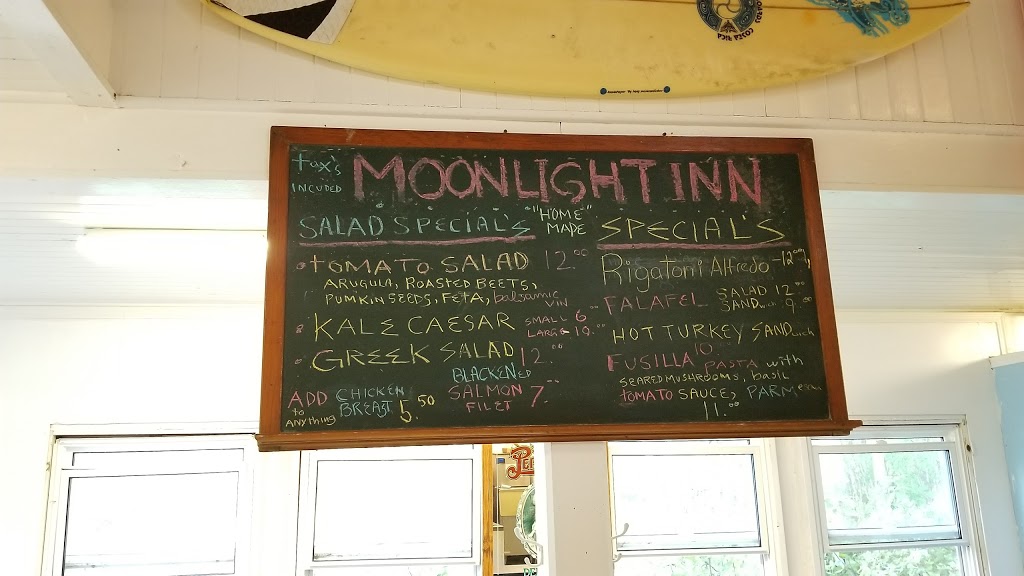 COSTA RICA
Tax's
INCUDED
MOONLIGHT INN
SALAD SPECIAL'S
"HOME"
MADE
TOMATO SALAD 12.00
ARUGULA, ROASTED BEETS,
PUMKIN SEEDS, FETA, balsamic
VIN
KALE CAESAR SMALL 6
LARGE 10.00
GREEK SALAD 12.00
ADD CHICKEN
to BREAST 5.50
ANYTHING
BLACKENED
SALMON 7.--
FILET
SPECIAL'S
Rigatoni Alfredo -12.00
FALAFEL SALAD 12.00
SANDwich 9.00
HOT TURKEY SANDwich
10.
FUSILLA PASTA with
SEARED MUSHROOMS, basil
TOMATO SAUCE, PARMesan
11.00